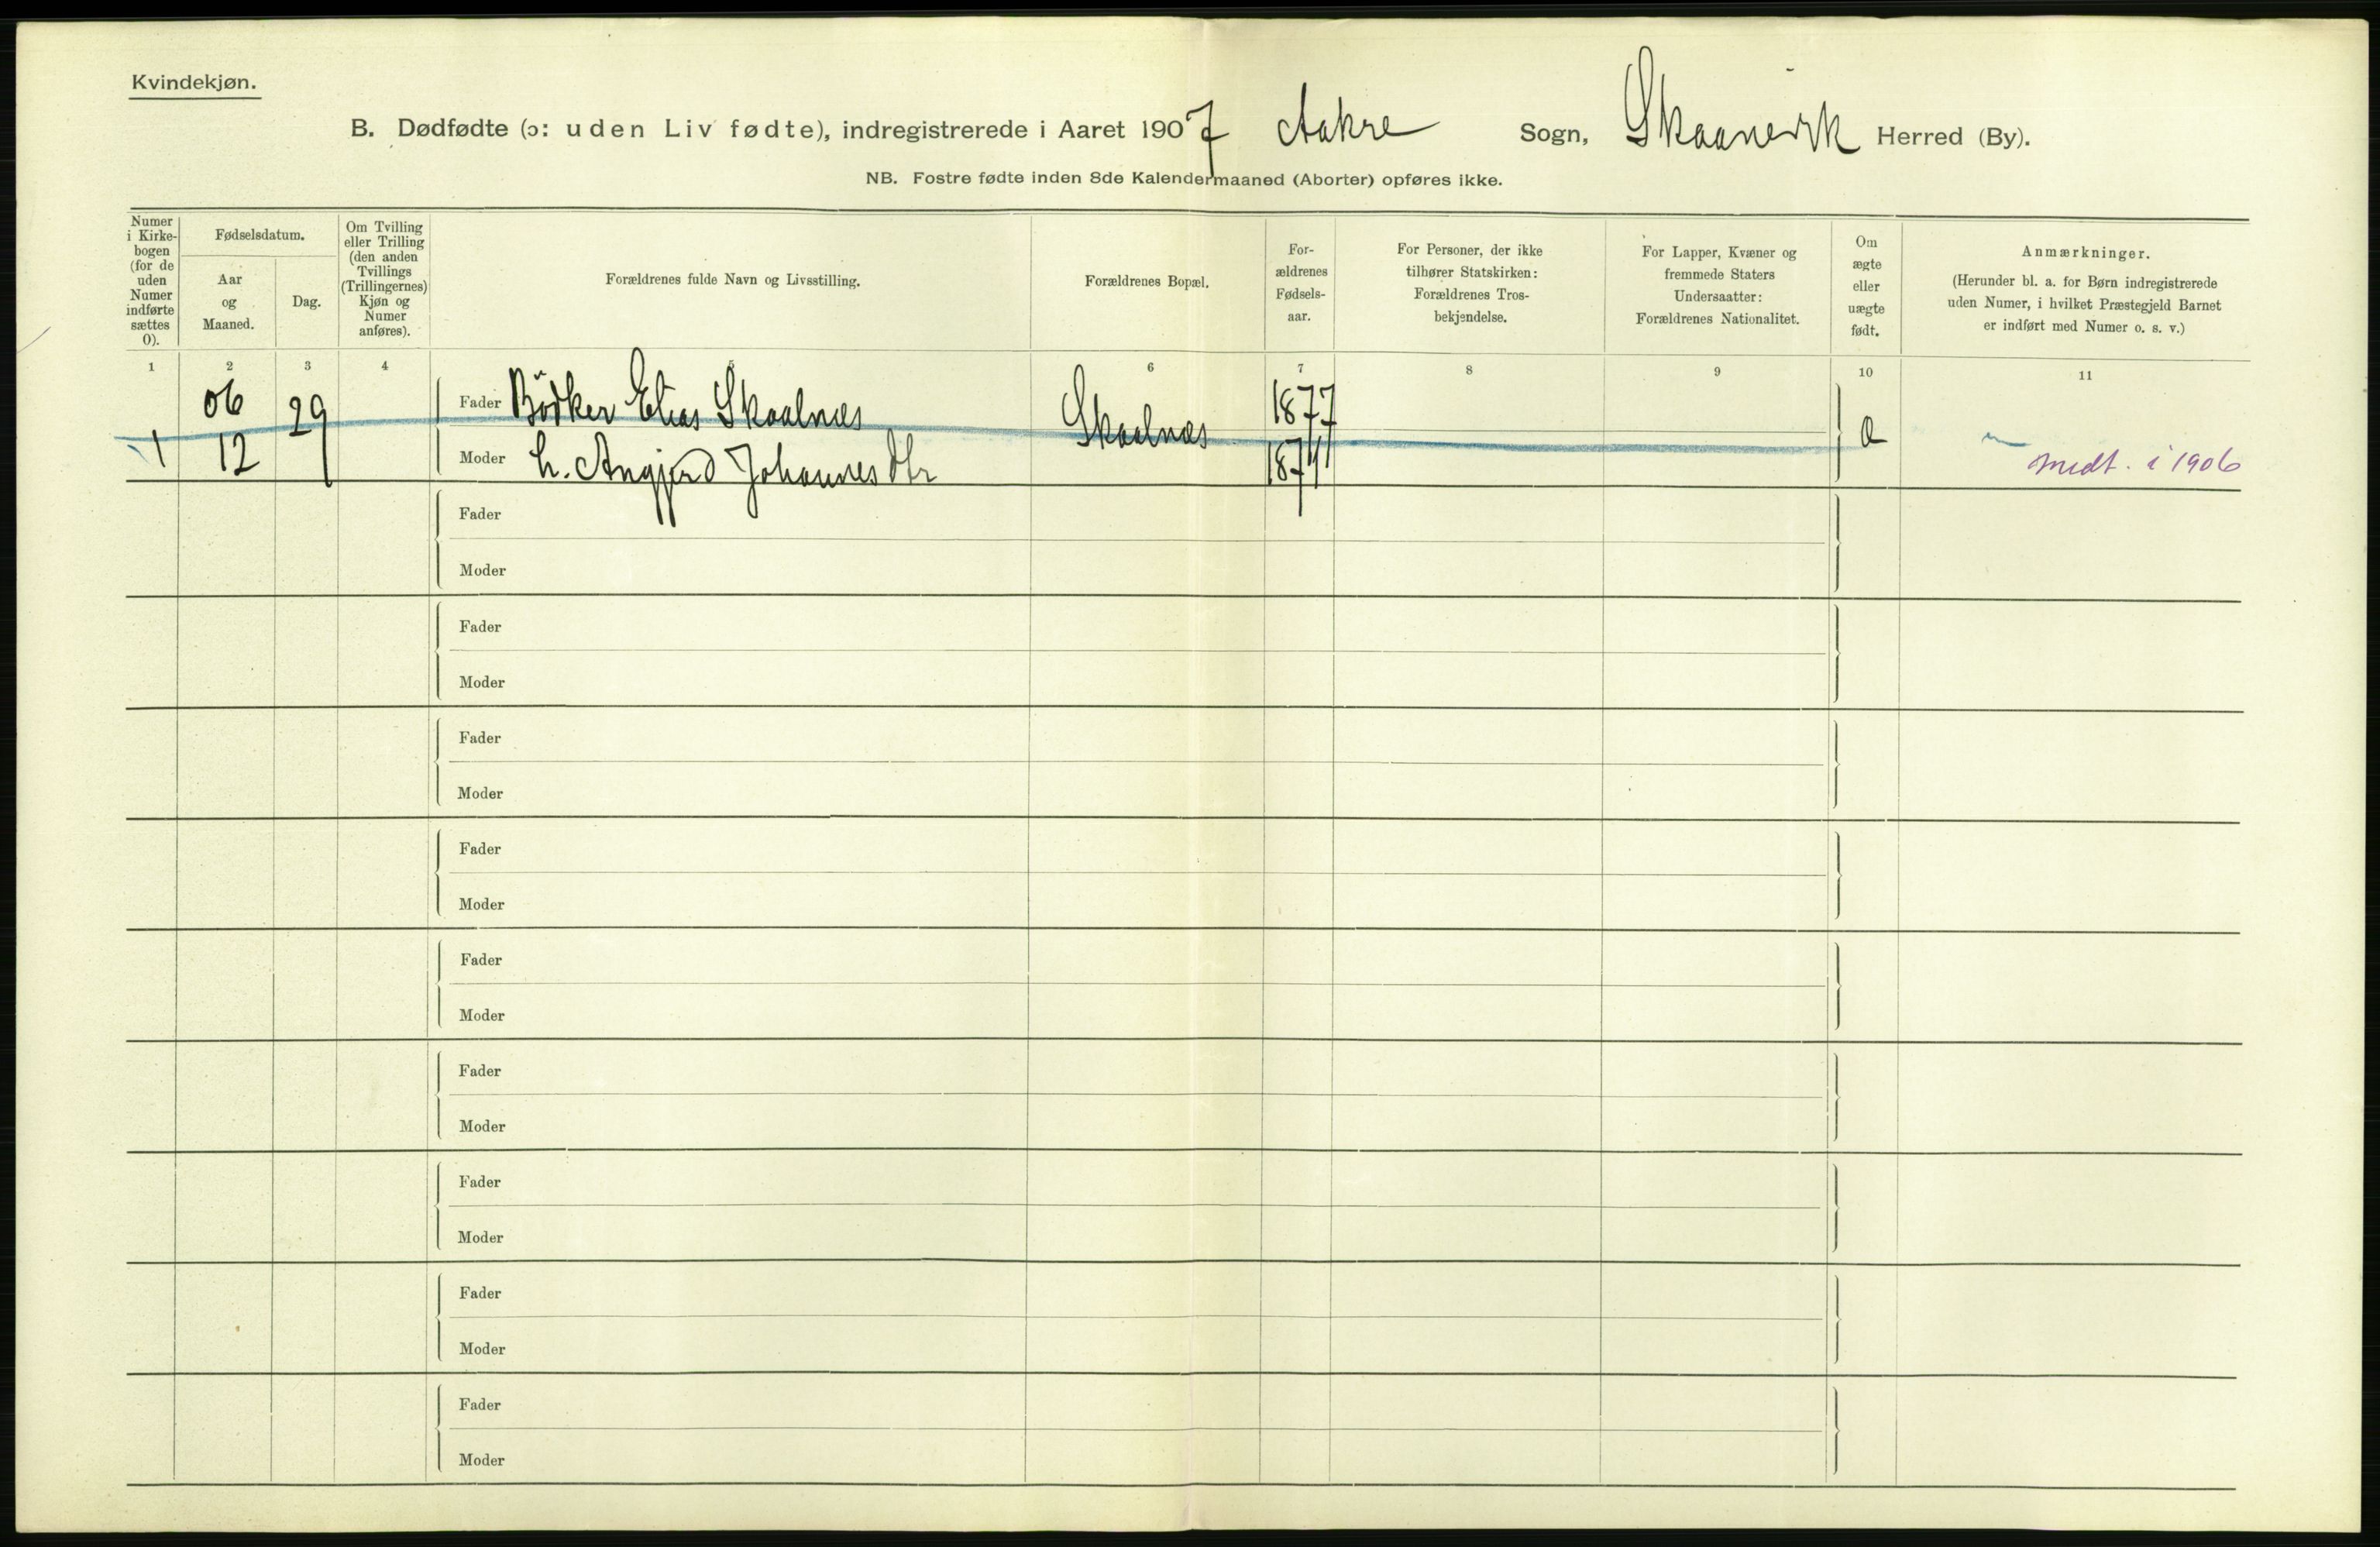 Kvindekjøn.
B. Dødfødte (ɔ: uden Liv fødte), indregistrerede i Aaret 1907 Aakre Sogn, Skaanevik Herred (By).
NB. Fostre fødte inden 8de Kalendermaaned (Aborter) opføres ikke.
Numer i Kirke-bogen (for de uden Numer indførte sættes 0).
Fødselsdatum.
Aar og Maaned.
Dag.
Om Tvilling eller Trilling (den anden Tvillings (Trillingernes) Kjøn og Numer anføres).
Forældrenes fulde Navn og Livsstilling.
Forældrenes Bopæl.
For-ældrenes Fødsels-aar.
For Personer, der ikke tilhører Statskirken: Forældrenes Tros-bekjendelse.
For Lapper, Kvæner og fremmede Staters Undersaatter: Forældrenes Nationalitet.
Om ægte eller uægte født.
Anmærkninger.
(Herunder bl. a. for Børn indregistrerede uden Numer, i hvilket Præstegjeld Barnet er indført med Numer o. s. v.)
1 2 3 4 5 6 7 8 9 10 11
06 29 Fader Bödker Elias Skaalnæs Skaalnæs 1877
1 12 Moder h. Angjerd Johannes Dtr 1877 a
medt. i 1906
Fader
Moder
Fader
Moder
Fader
Moder
Fader
Moder
Fader
Moder
Fader
Moder
Fader
Moder
Fader
Moder
Fader
Moder